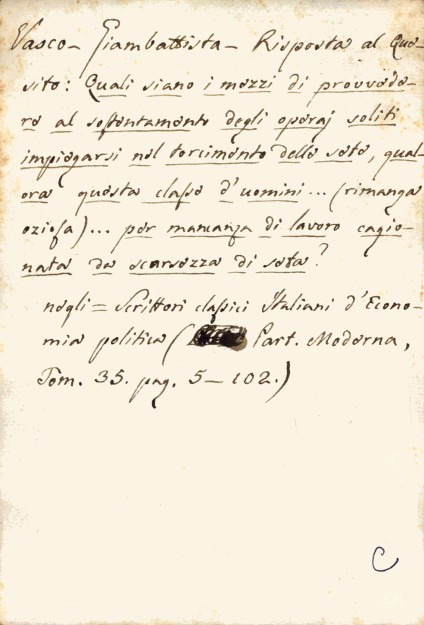 Vasco - Giambattista - Risposta al Que-
sito: Quali siano i mezzi di provvede-
re al sostentamento degli operaj soliti
impiegarsi nel torcimento delle sete, qual-
ora questa classe d'uomini... (rimanga
oziosa)... per mancanza di lavoro cagio-
nata da scarsezza di seta?
negli = Scrittori classici Italiani d'Econo-
mia politica ( Part. Moderna,
Tom. 35. pag. 5 - 102.)
C